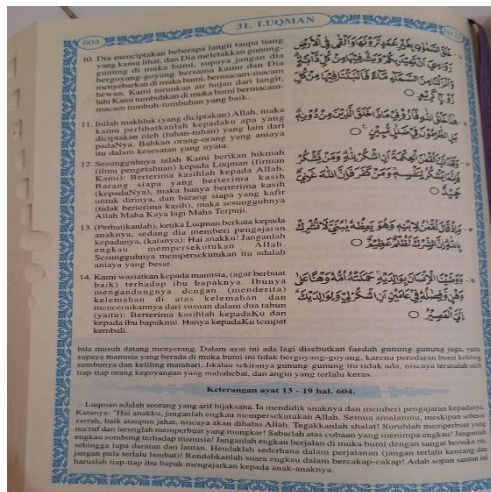 604
31. LUQMAN
10. Dia menciptakan beberapa langit tanpa tiang
yang kamu lihat, dan Dia meletakkan gunung-
gunung di muka bumi, supaya jangan dia
bergoyang-goyang bersama kamu dan Dia
menyebarkan di muka bumi, bermacam-macam
hewan. Kami turunkan air hujan dari langit,
lalu Kami tumbuhkan di muka bumi bermacam-
macam tumbuh-tumbuhan yang baik.
11. Inilah makhluk (yang diciptakan) Allah, maka
kamu perlihatkanlah kepadaku apa yang
diciptakan oleh (tuhan-tuhan) yang lain dari
padaNya. Bahkan orang-orang yang aniaya
itu dalam kesesatan yang nyata.
12. Sesungguhnya telah Kami berikan hikmah
(ilmu pengetahuan) kepada Luqman (firman
Kami): Berterima kasihlah kepada Allah.
Barang siapa yang berterima kasih
(kepadaNya), maka hanya berterima kasih
untuk dirinya, dan barang siapa yang kafir
(tidak berterima kasih), maka sesungguhnya
Allah Maha Kaya lagi Maha Terpuji.
13. (Perhatikanlah), ketika Luqman berkata kepada
anaknya, sedang dia memberi pengajaran
kepadanya, (katanya): Hai anakku! Janganlah
engkau mempersekutukan Allah.
Sesungguhnya mempersekutukan itu adalah
aniaya yang besar.
14. Kami wasiatkan kepada manusia, (agar berbuat
baik) terhadap ibu bapaknya. Ibunya
mengandungnya dengan (menderita)
kelemahan di atas kelemahan dan
menceraikannya dari susuan dalam dua tahun
(yaitu): Berterima kasihlah kepadaKu dan
kepada ibu bapakmu. Hanya kepadaKu tempat
kembali.
خَلَقَ السَّمٰوٰتِ بِغَيْرِ عَمَدٍ تَرَوْنَهَا وَاَلْقٰى فِى الْاَرْضِ
رَوَاسِيَ اَنْ تَمِيْدَ بِكُمْ وَبَثَّ فِيْهَا مِنْ كُلِّ دَاۤبَّةٍ
وَاَنْزَلْنَا مِنَ السَّمَاۤءِ مَاۤءً فَاَنْۢبَتْنَا فِيْهَا مِنْ كُلِّ
زَوْجٍ كَرِيْمٍ
هٰذَا خَلْقُ اللّٰهِ فَاَرُوْنِيْ مَاذَا خَلَقَ الَّذِيْنَ مِنْ دُوْنِهٖ
بَلِ الظّٰلِمُوْنَ فِيْ ضَلٰلٍ مُّبِيْنٍ
وَلَقَدْ اٰتَيْنَا لُقْمٰنَ الْحِكْمَةَ اَنِ اشْكُرْ لِلّٰهِ وَمَنْ يَّشْكُرْ
فَاِنَّمَا يَشْكُرُ لِنَفْسِهٖ وَمَنْ كَفَرَ فَاِنَّ اللّٰهَ غَنِيٌّ
حَمِيْدٌ
وَاِذْ قَالَ لُقْمٰنُ لِابْنِهٖ وَهُوَ يَعِظُهٗ يٰبُنَيَّ لَا تُشْرِكْ
بِاللّٰهِ اِنَّ الشِّرْكَ لَظُلْمٌ عَظِيْمٌ
وَوَصَّيْنَا الْاِنْسَانَ بِوَالِدَيْهِ حَمَلَتْهُ اُمُّهٗ وَهْنًا عَلٰى
وَهْنٍ وَّفِصٰلُهٗ فِيْ عَامَيْنِ اَنِ اشْكُرْ لِيْ وَلِوَالِدَيْكَ
اِلَيَّ الْمَصِيْرُ
bila musuh datang menyerang. Dalam ayat ini ada lagi disebutkan faedah gunung-gunung juga, yaitu
supaya manusia yang berada di muka bumi ini tidak bergoyang-goyang, karena peredaran bumi keliling
sumbunya dan keliling matahari. Jikalau sekiranya gunung-gunung itu tidak ada, niscaya terasalah oleh
tiap-tiap orang kegoyangan yang mahahebat, dan angin yang terlalu keras.
Keterangan ayat 13 - 19 hal. 604.
Luqman adalah seorang yang arif bijaksana. Ia mendidik anaknya dan memberi pengajaran kepadanya.
Katanya: "Hai anakku, janganlah engkau mempersekutukan Allah. Semua amalanmu, meskipun sebesar
zarrah, baik ataupun jahat, niscaya akan dibalas Allah. Tegakkanlah shalat! Suruhlah memperbuat yang
ma'ruf dan laranglah memperbuat yang mungkar! Sabarlah atas cobaan yang menimpa engkau! Janganlah
engkau sombong terhadap manusia! Janganlah engkau berjalan di muka bumi dengan sangat bersuka-ria,
sehingga lupa daratan dan lautan. Hendaklah sederhana dalam perjalanan (jangan terlalu kencang dan
jangan pula terlalu lambat)! Rendahkanlah suara engkau dalam bercakap-cakap! Adab sopan santun ini
haruslah tiap-tiap ibu bapak mengajarkan kepada anak-anaknya.